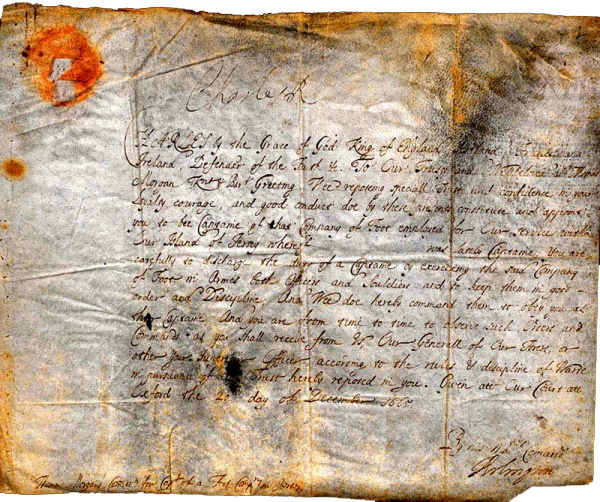 Charles R
CHARLES by the Grace of God King of England Scotland France and
Ireland Defender of the Faith &c. To Our Trusty and Welbeloved Sr Thomas
Morgan Knt & Bart Greeting Wee reposing speciall Trust and confidence in your
Loyalty, courage, and good conduct doe by these presents constitute and appoint
you to be Captaine of that Company of Foot employed for Our Service within
Our Island of Jersey whereof was lately Captaine. You are
carefully to discharge the duty of a Captaine by exercising the said Company
of Foot in Armes both Officers and Souldiers and to keep them in good
order and Discipline, And Wee doe hereby command them to obey you as
their Captaine And you are from time to time to observe such Orders and
Commands as you shall receive from Us Our Generall of Our Forces, or
other your Officer according to the rules & discipline of Warre
in pursuance of Trust hereby reposed in you. Given att Our Court att
Oxford the day of December 1665
By his Maties Comand
Thomas Morgans for Capt of a Foot Compa in Jersey